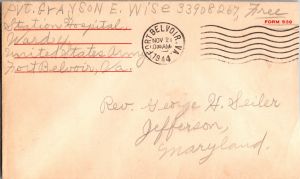 Pvt. Branson E. Wise 33908267, Free
Station Hospital,
Ward 4
United States Army
Fort Belvoir, Va.
FORM 539
FORT BELVOIR, VA.
NOV 21
1944
Rev. George H. Seiler
Jefferson,
Maryland.